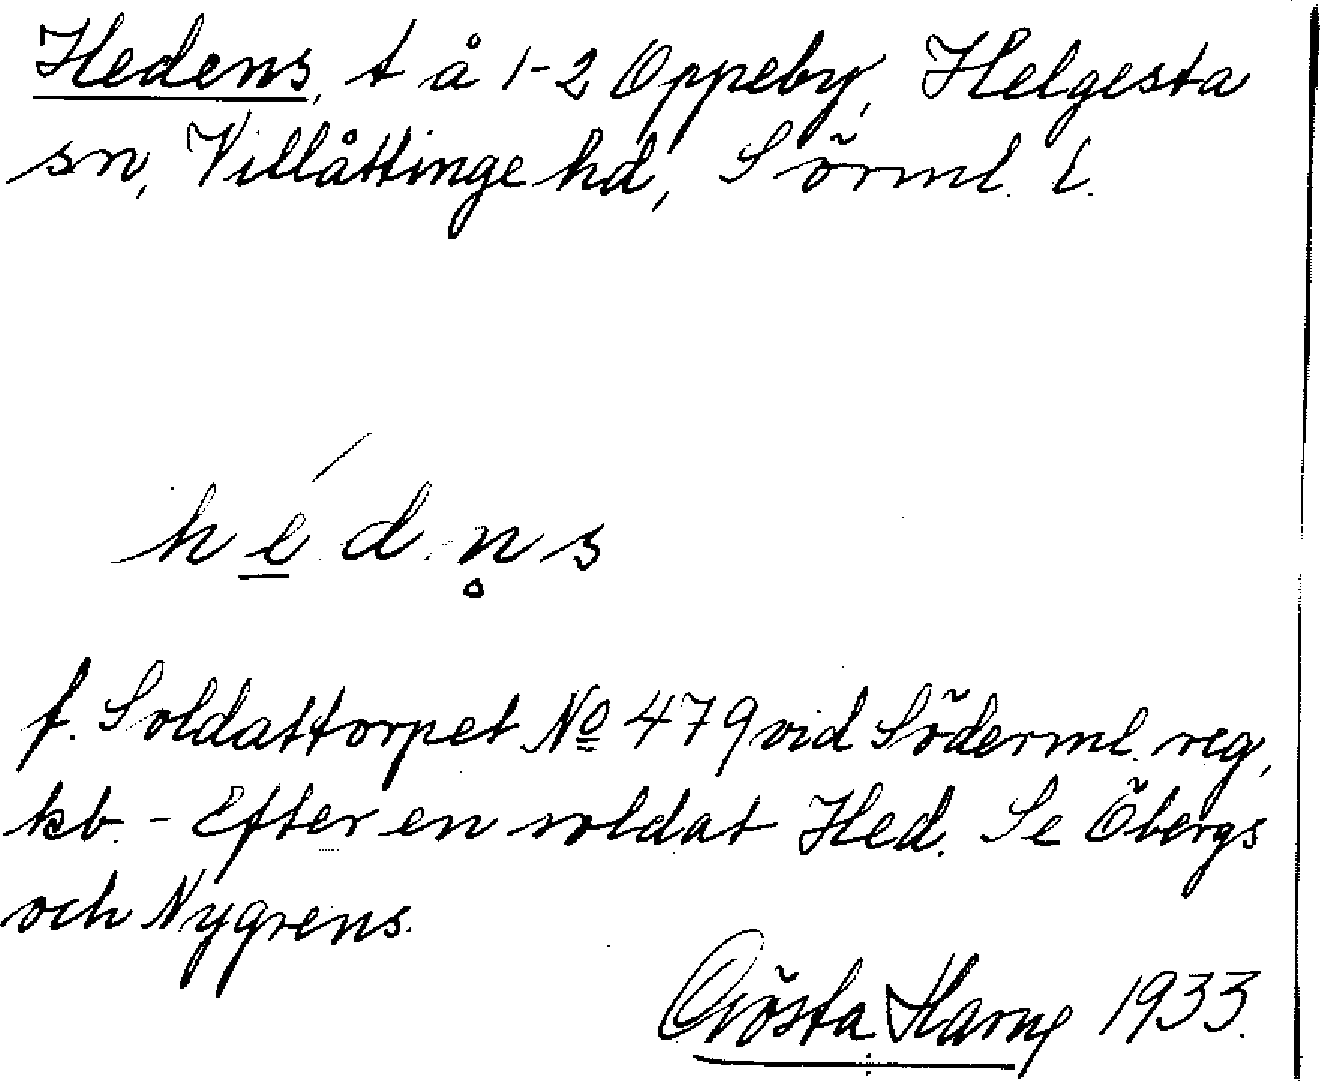 Hedens, t å 1-2 Oppeby, Helgesta
sn, Villåttinge hd, Sörml. l.
hédn̥s
f. Soldattorpet No 479 vid Söderml. reg,
kb. - Efter en soldat Hed. Se Öbergs
och Nygrens.
Gösta Harng 1933.